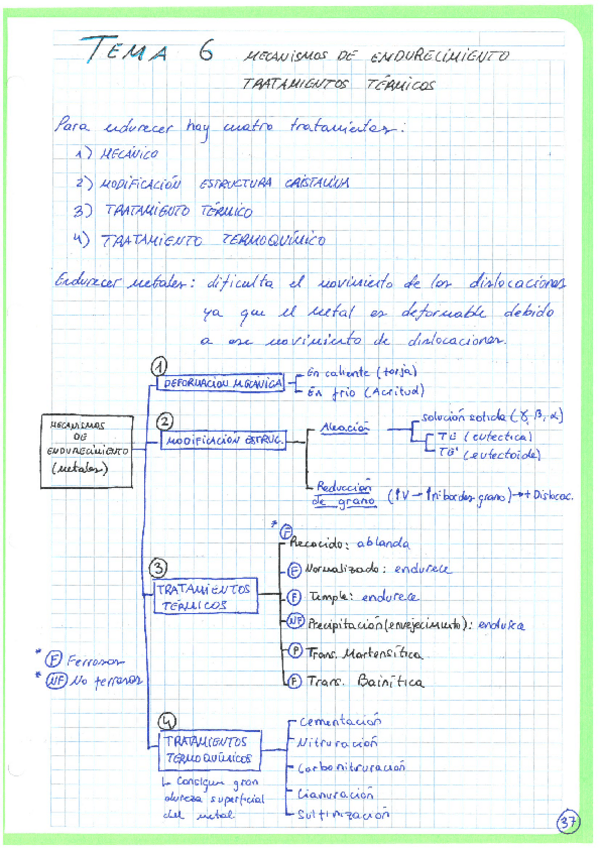 TEMA 6 MECANISMOS DE ENDURECIMIENTO
TRATAMIENTOS TÉRMICOS
Para endurecer hay cuatro tratamientos:
1) MECÁNICO
2) MODIFICACIÓN ESTRUCTURA CRISTALINA
3) TRATAMIENTO TÉRMICO
4) TRATAMIENTO TERMOQUÍMICO
Endurecer metales: dificulta el movimiento de las dislocaciones
ya que el metal es deformable debido
a ese movimiento de dislocaciones.
MECANISMOS
DE
ENDURECIMIENTO
(metales)
1
DEFORMACIÓN MECÁNICA
En caliente (forja)
En frío (Acritud)
2
MODIFICACIÓN ESTRUC.
Aleación
solución solida (γ, β, α)
TE (eutectica)
TE' (eutectoide)
Reducción
de grano (↑V → ↑nº bordes grano) → + Dislocac.
3
TRATAMIENTOS
TÉRMICOS
* F
Recocido: ablanda
F Normalizado: endurece
F Temple: endurece
NF Precipitación (envejecimiento): endurece
F Trans. Martensítica
F Trans. Bainítica
* F Ferrosos
* NF No ferrosos
4
TRATAMIENTOS
TERMOQUÍMICOS
↳ Consigue gran
dureza superficial
del metal
Cementación
Nitruración
Carbonitruración
Cianuración
Sulfinización
37